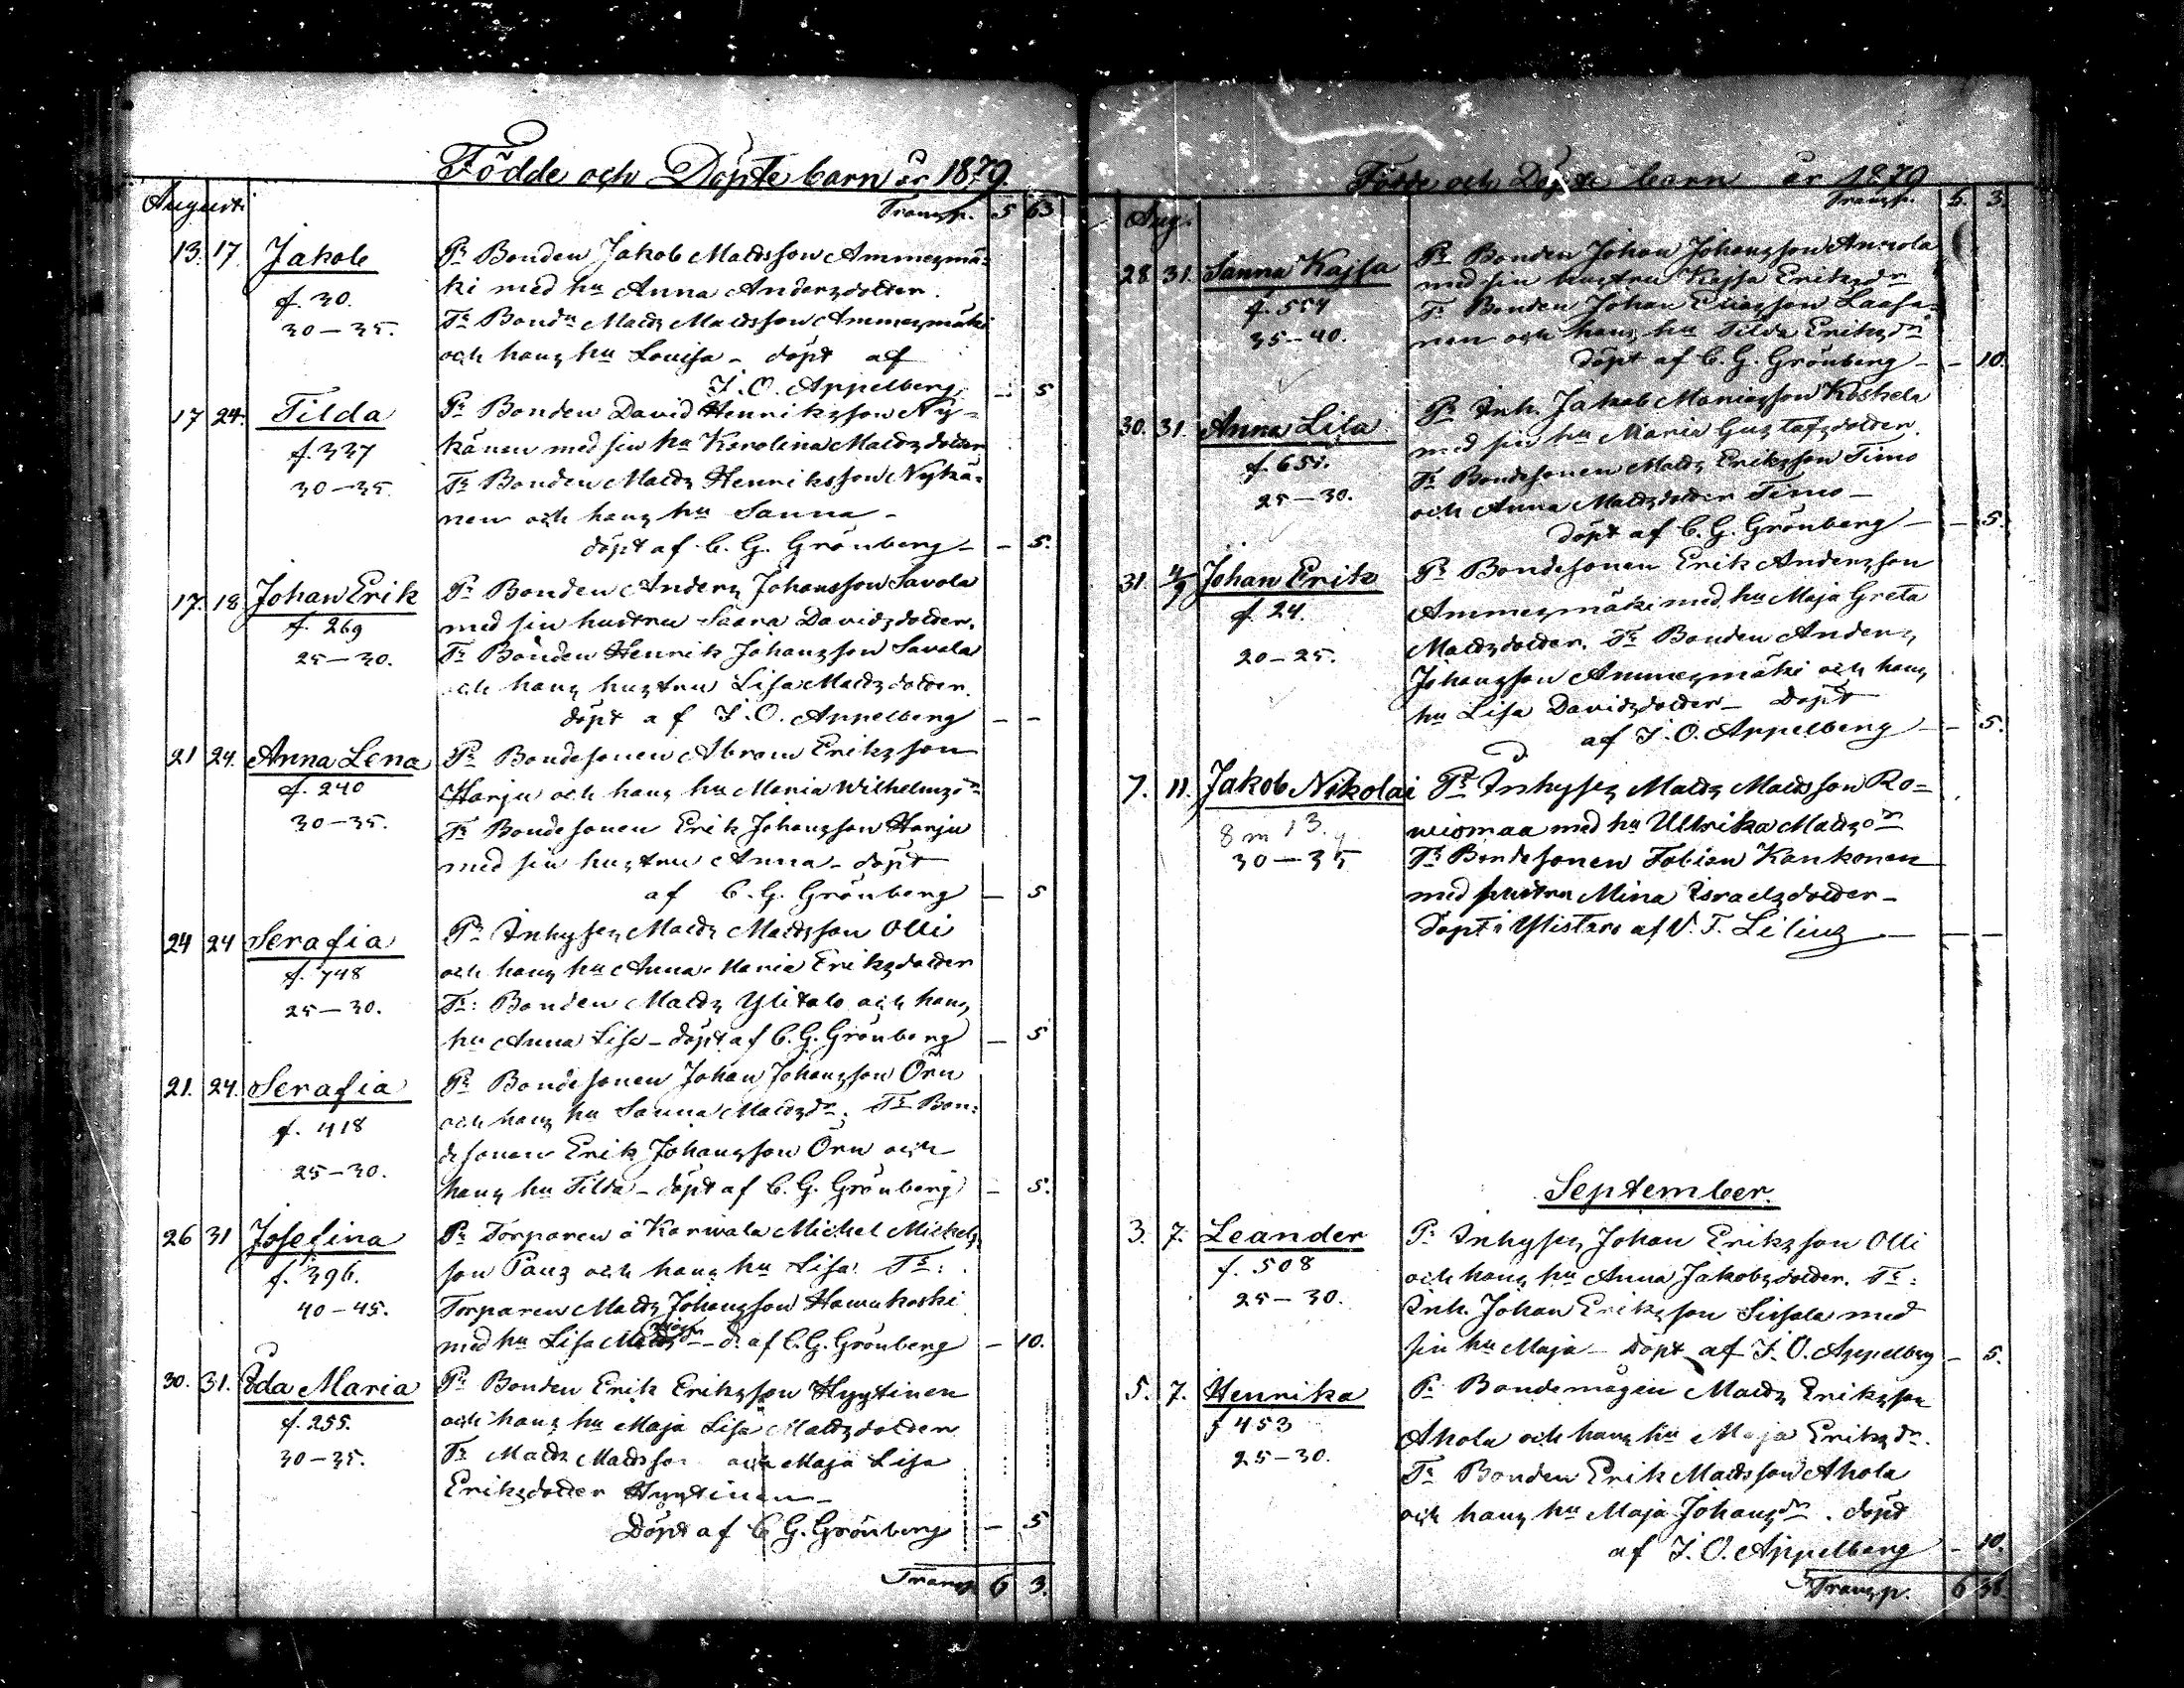 Födde och Döpte barn år 1879.
Augusti
Transp. 5 63
13. 17. Jakob
f. 30.
30-35.
Pr Bonden Jakob Matsson Ammezmä-
ki med hu Anna Andersdotter.
Tr Bondn Matz Matsson Ammezmäki
och hans hu Lovisa - döpt af
J. O. Appelberg - 5
17 24. Tilda
f. 337
30-35
Pr Bonden David Henriksson Ny-
känen med sin hu Karolina Matzdotter
Tr Bonden Matz Henriksson Nykä-
nen och hans hu Sanna -
döpt af C. G. Grönberg - - 5.
17. 18 Johan Erik
f. 269
25-30.
Pr Bonden Anders Johansson Savola
med sin hustru Saara Davidsdotter.
Tr Bonden Henrik Johansson Savola
och hans hustru Lisa Matzdotter.
döpt af J. O. Appelberg - -
21 24. Anna Lena
f. 240
30-35.
Pr Bondesonen Abram Eriksson
Harju och hans hu Maria Wilhelmsdr
Tr Bondesonen Erik Johansson Harju
med sin hustru Anna - döpt
af C. G. Grönberg - 5
24 24 Serafia
f. 748
25-30.
Pr Inhyses Matz Matsson Olli
och hans hu Anna Maria Eriksdotter
Tr: Bonden Matz Ylitalo och hans
hu Anna Lisa - döpt af C. G. Grönberg - 5
21. 24. Serafia
f. 418
25-30.
Pr Bondesonen Johan Johansson Örn
och hans hu Sanna Matzdr. Tr Bon-
desonen Erik Johansson Örn och
hans hu Tilda - döpt af C. G. Grönberg - 5.
26 31 Josefina
f. 396.
40-45.
Pr Torparen å Karivala Michel Michels
son Panz och hans hu Lisa. Tr:
Torparen Matz Johansson Hawukoski
med hu Lisa - d. af C. G. Grönberg - 10.
30. 31. Ida Maria
f. 255.
30-35.
Pr Bonden Erik Eriksson Hyytinen
och hans hu Maja Lisa Matzdotter
Tr Matz Matsson och Maja Lisa
Eriksdotter Hyytinen -
Döpt af C G. Grönberg - 5
Transp 6 3.
Födde och Döpte barn år 1879
Transp. 6. 3.
Aug.
28 31. Sanna Kajsa
f. 554
35-40.
Pr Bonden Johan Johansson Annola
med sin hustru Kajsa Eriksdr
Tr Bonden Johan Eliasson Laasa-
nen och hans hu Tilda Eriksdr
döpt af C. G. Grönberg - - 10.
30. 31. Anna Lisa
f. 651.
25-30.
Pr Inh. Jakob Mariasson Koskela
med sin hu Maria Gustafsdotter.
Tr Bondesonen Matz Eriksson Timo
och Anna Matzdotter Timo -
döpt af C. G. Grönberg - - 5.
31. 4/9 Johan Erik
f. 24.
20-25.
Pr Bondesonen Erik Andersson
Ammezmäki med hu Maja Greta
Matzdotter. Tr Bonden Anders
Johansson Ammezmäki och hans
hu Lisa Davidsdotter - Döpt
af J. O. Appelberg - - 5.
7. 11. Jakob Nikolai
8 m 13.
30-35
Pr Inhyses Matz Matsson Ro-
wiomaa med hu Ullrika Matzdr
Tr Bondesonen Fabian Kankonen
med hustru Mina Israelsdotter -
Döpt i Ylistaro af V. T. Lilius - - -
September.
3. 7. Leander
f. 508
25-30.
Pr Inhyses Johan Eriksson Olli
och hans hu Anna Jakobsdotter. Tr:
Inh. Johan Eriksson Sissala med
sin hu Maja - Döpt af J. O. Appelberg - 5.
5. 7. Henrika
f 453
25-30.
Pr Bondemågen Matz Eriksson
Ahola och hans hu Maja Eriksdr.
Tr Bonden Erik Matsson Ahola
och hans hu Maja Johansdr. döpt
af J. O. Appelberg - 10.
Transp. 6 38.